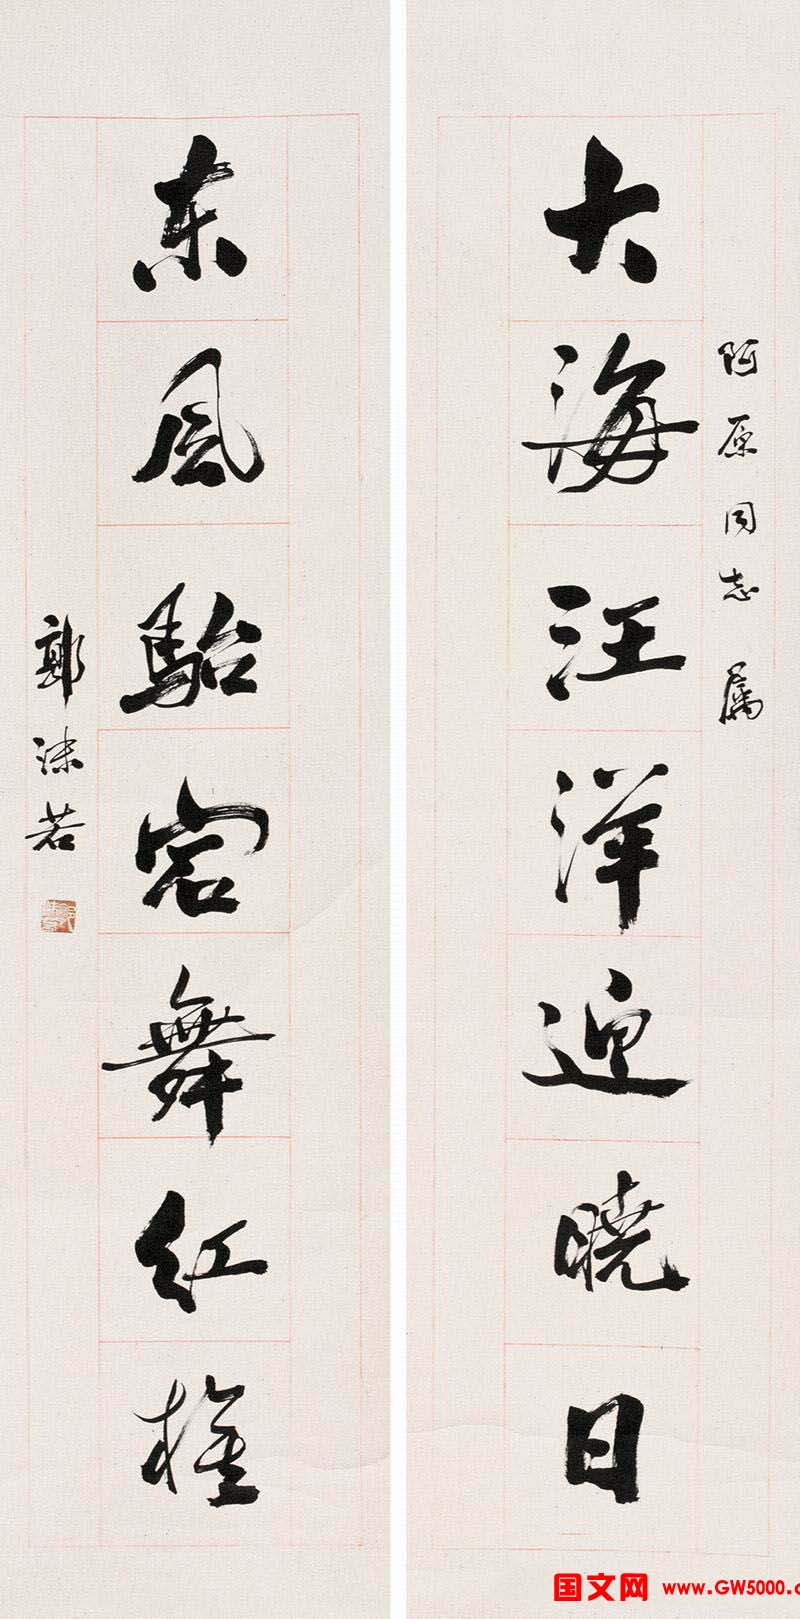 阿原同志属
大海汪洋迎晓日
东风駘宕舞红旌
郭沫若
国文网 www.GW5000.c